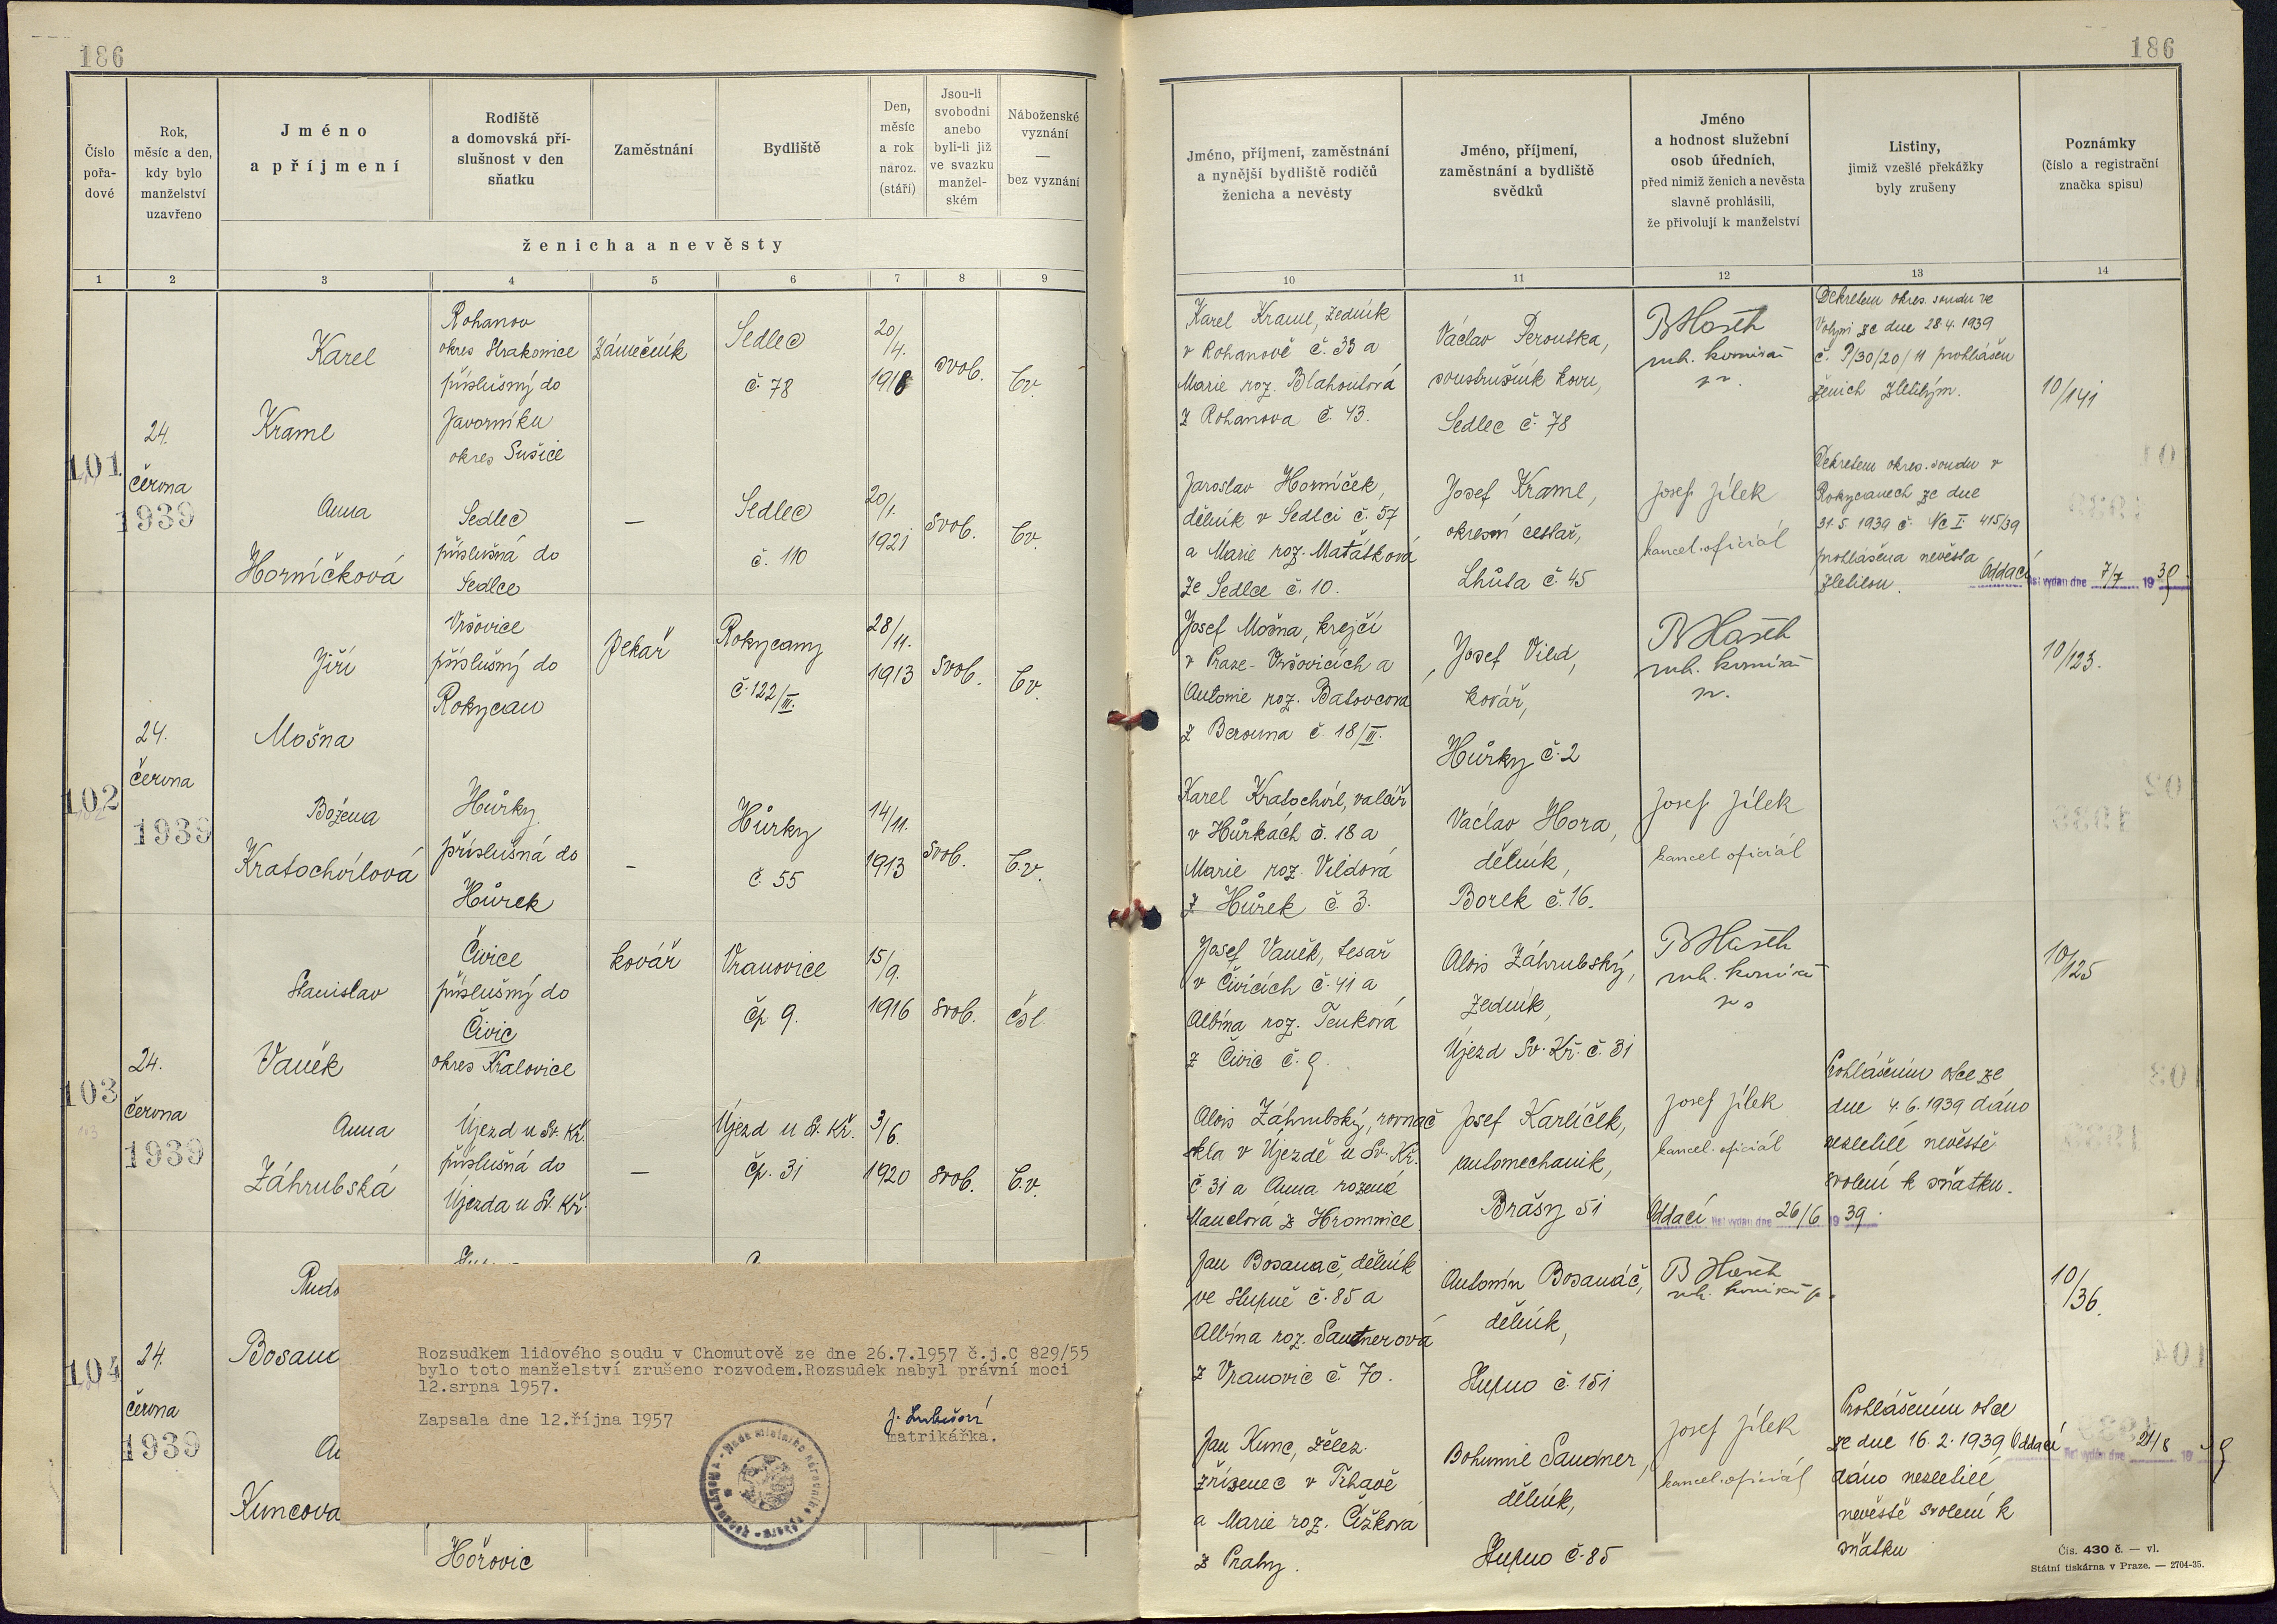 186
186
Číslo pořadové
Rok, měsíc a den, kdy bylo manželství uzavřeno
Jméno a příjmení
Rodiště a domovská příslušnost v den sňatku
Zaměstnání
Bydliště
Den, měsíc a rok naroz. (stáří)
Jsou-li svobodni anebo byli-li již ve svazku manželském
Náboženské vyznání — bez vyznání
ženicha a nevěsty
1 2 3 4 5 6 7 8 9
Jméno, příjmení, zaměstnání a nynější bydliště rodičů ženicha a nevěsty
Jméno, příjmení, zaměstnání a bydliště svědků
Jméno a hodnost služební osob úředních, před nimiž ženich a nevěsta slavně prohlásili, že přivolují k manželství
Listiny, jimiž vzešlé překážky byly zrušeny
Poznámky (číslo a registrační značka spisu)
10 11 12 13 14
101
24.
června
1939
Karel
Kraml
Rohanov
okres Strakonice
příslušný do
Javorníku
okres Sušice
Zámečník
Sedlec
č. 78
20/4.
1918
svob.
b.v.
Anna
Horníčková
Sedlec
příslušná do
Sedlce
—
Sedlec
č. 110
20/1.
1921
svob.
b.v.
Karel Kraml, zedník
v Rohanově č. 33 a
Marie roz. Blahoutová
z Rohanova č. 43.
Jaroslav Horníček,
dělník v Sedlci č. 57
a Marie roz. Maťátková
ze Sedlce č. 10.
Václav Peroutka,
soustružník kovu,
Sedlec č. 78
Josef Kraml,
okresní cestář,
Lhůta č. 45
Josef Jílek
kancel. oficiál
Dekretem okres. soudu ve
Volyni ze dne 28.4.1939
č. P/30/20/11 prohlášen
ženich zletilým.
Dekretem okres. soudu v
Rokycanech ze dne
31.5.1939 č. Nc I. 415/39
prohlášena nevěsta
zletilou.
10/141
Oddací list vydán dne 7/7 1939
102
24.
června
1939
Jiří
Mošna
Vršovice
příslušný do
Rokycan
pekař
Rokycany
č. 122/III.
28/11.
1913
svob.
b.v.
Božena
Kratochvílová
Hůrky
příslušná do
Hůrek
-
Hůrky
č. 55
14/11.
1913
svob.
b.v.
Josef Mošna, krejčí
v Praze-Vršovicích a
Antonie roz. Batovcová
z Berouna č. 18/III.
Karel Kratochvíl, valcíř
v Hůrkách č. 18 a
Marie roz. Vildová
z Hůrek č. 3.
Josef Vild,
kovář,
Hůrky č. 2
Václav Hora,
dělník,
Borek č. 16.
Josef Jílek
kancel. oficiál
10/123.
103
24.
června
1939
Stanislav
Vaněk
Čivice
příslušný do
Čivic
okres Kralovice
kovář
Vranovice
čp. 9.
15/9.
1916
svob.
čsl.
Anna
Záhrubská
Újezd u Sv. Kř.
příslušná do
Újezda u Sv. Kř.
—
Újezd u Sv. Kř.
čp. 31
3/6.
1920
svob.
b.v.
Josef Vaněk, tesař
v Čivicích č. 41 a
Albína roz. Tenková
z Čivic č. 9.
Alois Záhrubský, rovnač
skla v Újezdě u Sv. Kř.
č. 31 a Anna rozená
Mauelová z Hromnice
Alois Záhrubský,
zedník,
Újezd Sv. Kř. č. 31
Josef Karlíček,
automechanik,
Břasy 51
Josef Jílek
kancel. oficiál
Oddací list vydán dne 26/6 1939.
Prohlášením otce ze
dne 4.6.1939 dáno
nezletilé nevěstě
svolení k sňatku.
10/125
104
24.
června
1939
Rudo
Bosaná
An
Kuncova
Hořovic
Rozsudkem lidového soudu v Chomutově ze dne 26.7.1957 č.j.C 829/55
bylo toto manželství zrušeno rozvodem.Rozsudek nabyl právní moci
12.srpna 1957.
Zapsala dne 12.října 1957
matrikářka.
Jan Bosanáč, dělník
ve Stupně č. 85 a
Albína roz. Sautnerová
z Vranovic č. 70.
Jan Kunc, želez.
zřízenec v Trhavě
a Marie roz. Čížková
z Prahy.
Antonín Bosanáč,
dělník,
Stupno č. 151
Bohumil Sandner,
dělník,
Stupno č. 85
Josef Jílek
kancel. oficiál
Prohlášením otce
ze dne 16.2.1939
dáno nezletilé
nevěstě svolení k
sňatku
10/36.
Oddací list vydán dne 21/8 1939
Čís. 430 č. — vl.
Státní tiskárna v Praze. — 2704-35.